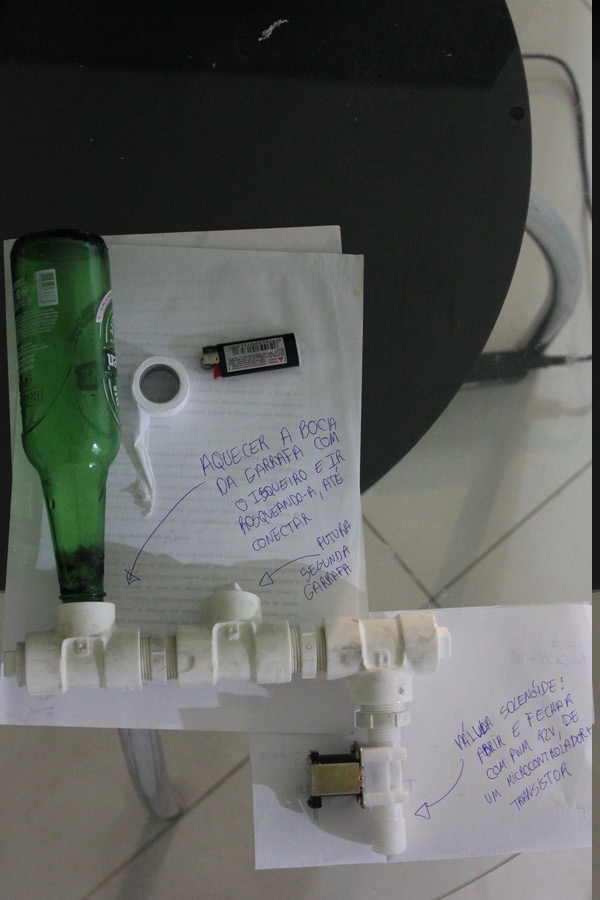 AQUECER A BOCA
DA GARRAFA COM
O ISQUEIRO E IR
ROSQUEANDO-A, ATÉ
CONECTAR
FUTURA
SEGUNDA
GARRAFA
VÁLVULA SOLENÓIDE:
ABRIR E FECHAR
COM PWM 12V, DE
UM MICROCONTROLADOR+
TRANSISTOR